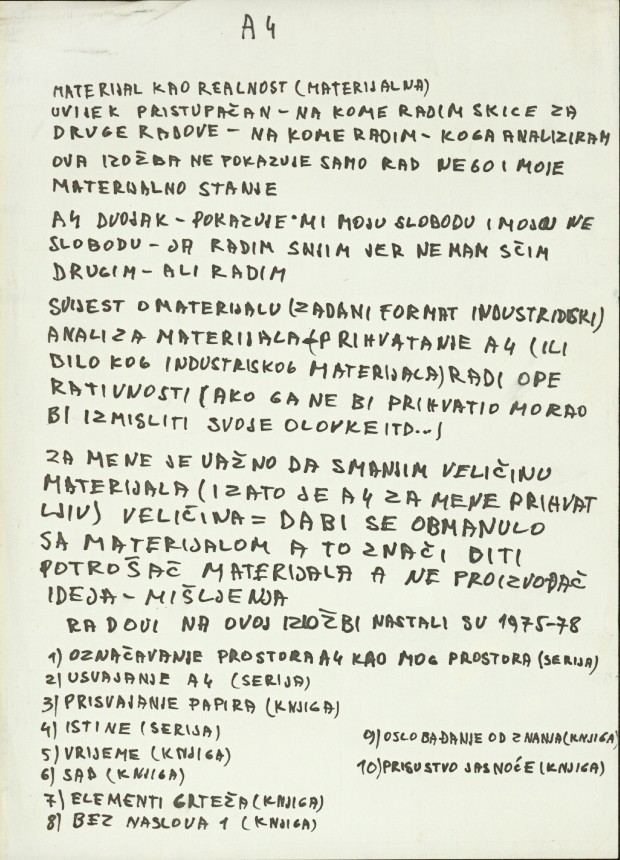 A4
MATERIJAL KAO REALNOST (MATERIJALNA)
UVIJEK PRISTUPAČAN – NA KOME RADIM SKICE ZA
DRUGE RADOVE – NA KOME RADIM – KOGA ANALIZIRAM
OVA IZOŽBA NE POKAZUJE SAMO RAD NEGO I MOJE
MATERIJALNO STANJE
A4 DVOJAK – POKAZUJE MI MOJU SLOBODU I MOJU NE
SLOBODU – JA RADIM SNJIM JER NEMAM SČIM
DRUGIM – ALI RADIM
SVIJEST O MATERIJALU (ZADANI FORMAT INDUSTRIJSKI)
ANALIZA MATERIJALA PRIHVATANJE A4 (ILI
BILO KOG INDUSTRISKOG MATERIJALA) RADI OPE
RATIVNOSTI (AKO GA NE BI PRIHVATIO MORAO
BI IZMISLITI SVOJE OLOVKE ITD...)
ZA MENE JE VAŽNO DA SMANJIM VELIČINU
MATERIJALA (I ZATO JE A4 ZA MENE PRIHVAT
LJIV) VELIČINA = DA BI SE OBMANULO
SA MATERIJALOM A TO ZNAČI BITI
POTROŠAČ MATERIJALA A NE PROIZVOĐAČ
IDEJA – MIŠLJENJA
RADOVI NA OVOJ IZLOŽBI NASTALI SU 1975-78
1) OZNAČAVANJE PROSTORA A4 KAO MOG PROSTORA (SERIJA)
2) USVAJANJE A4 (SERIJA)
3) PRISVAJANJE PAPIRA (KNJIGA)
4) ISTINE (SERIJA)
5) VRIJEME (KNJIGA)
6) SAD (KNJIGA)
7) ELEMENTI CRTEŽA (KNJIGA)
8) BEZ NASLOVA 1 (KNJIGA)
9) OSLOBAĐANJE OD ZNANJA (KNJIGA)
10) PRISUSTVO JASNOĆE (KNJIGA)